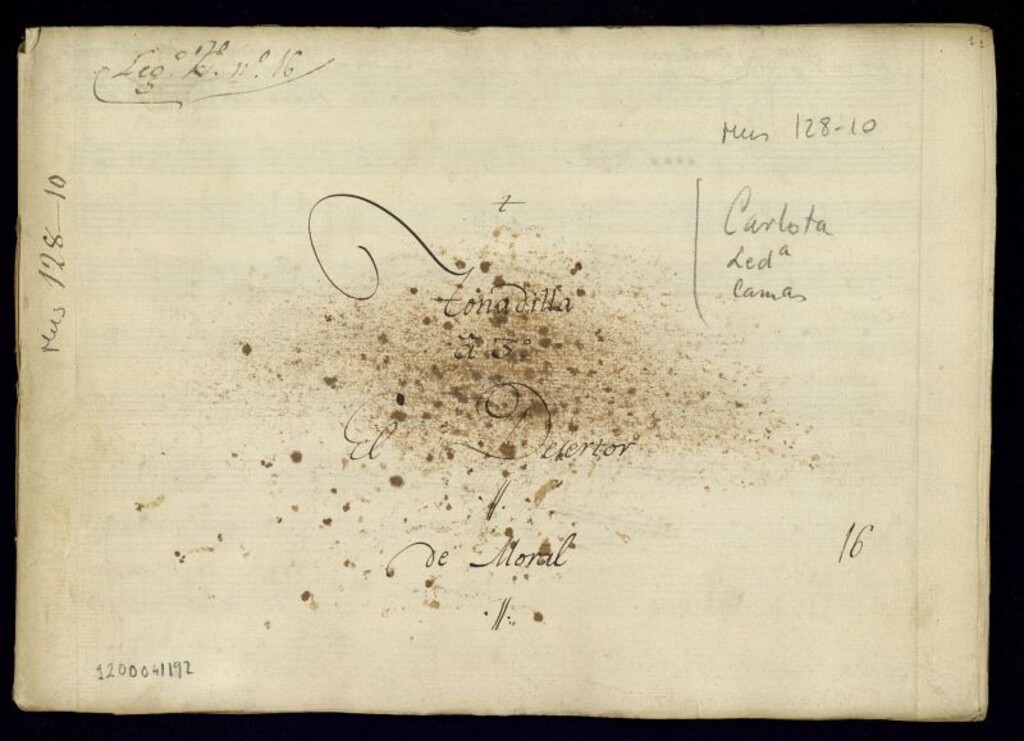 Leg.º nº. 16
Mus 128-10
Mus 128-10
Carlota
Ledª
Camas
Tonadilla
à 3º
El Desertor
de Moral
16
1200041192